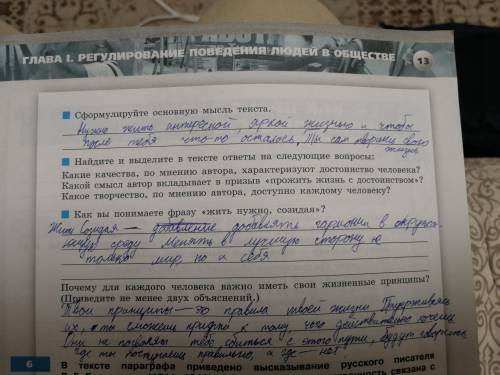 ГЛАВА I. РЕГУЛИРОВАНИЕ ПОВЕДЕНИЯ ЛЮДЕЙ В ОБЩЕСТВЕ
13
Сформулируйте основную мысль текста.
Нужно жить интересной яркой жизнью и чтобы
после тебя что-то осталось, Ты сам творишь свою
жизнь
Найдите и выделите в тексте ответы на следующие вопросы:
Какие качества, по мнению автора, характеризуют достоинство человека?
Какой смысл автор вкладывает в призыв «прожить жизнь с достоинством»?
Какое творчество, по мнению автора, доступно каждому человеку?
Как вы понимаете фразу «жить нужно, созидая»?
Жить созидая — добавлять гармонии в окружа-
ющую среду. Менять в лучшую сторону не
только мир, но и себя
Почему для каждого человека важно иметь свои жизненные принципы?
(Приведите не менее двух объяснений.)
Твои принципы — это правила твоей жизни. Придерживаясь
их, ты сможешь придти к тому, чего действительно хочешь
Они не позволят тебе сбиться с этого пути, будут говорить
где ты поступаешь правильно, а где — нет
6
В тексте параграфа приведено высказывание русского писателя
связана с